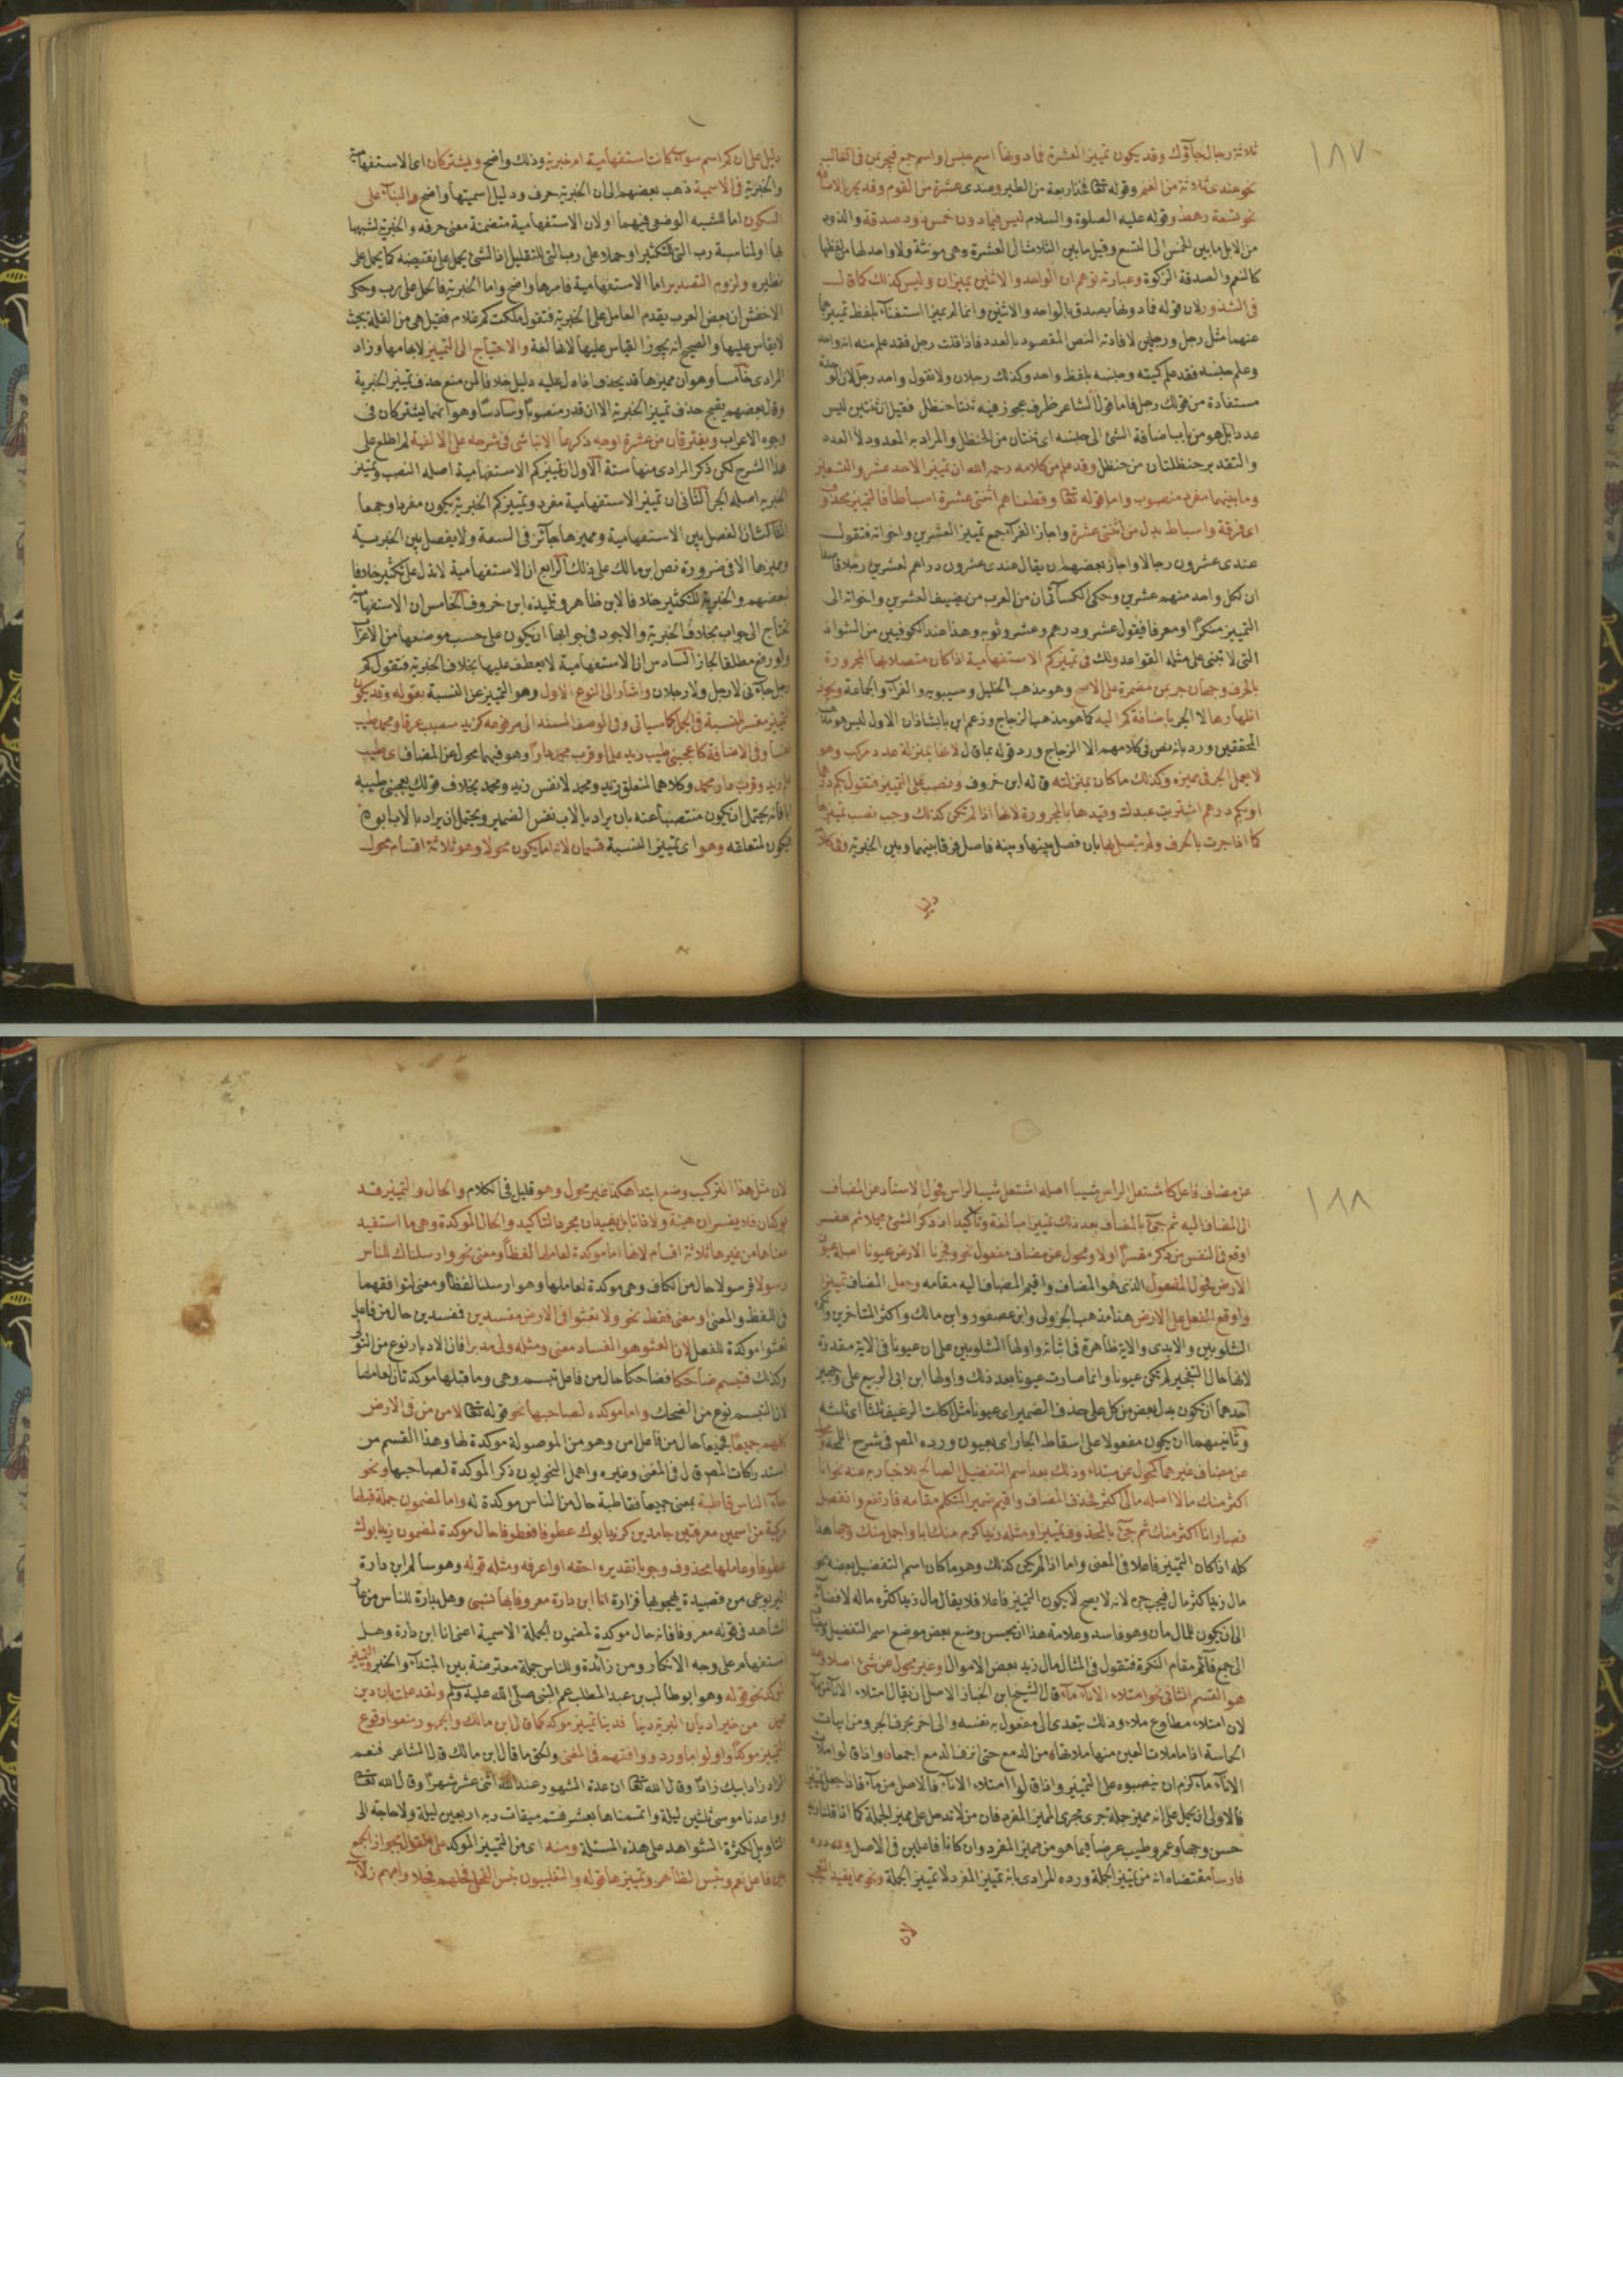 ١٨٧
ثلاثة رجال جاؤك وقد يكون تمييز العشرة فما دونها اسم جنس او اسم جمع فيجر بمن في الغالب
نحو عندي ثلاثة من الغنم وقوله تعالى فخذ اربعة من الطير وعندي عشرة من القوم وقد يجر بالاضافة
نحو تسعة رهط وقوله عليه الصلوة والسلام ليس فيما دون خمس ذود صدقة والذود
من الابل ما بين الخمس الى التسع وقيل ما بين الثلاث الى العشرة وهي مونثة ولا واحد لها من لفظها
كالنعم والصدقة الزكوة وعبارته توهم ان الواحد والاثنين يميزان وليس كذلك كما قال
في الشذور لان قوله فما دونها يصدق بالواحد والاثنين وانما لم يميزا استغناء بلفظ تمييزهما
عنهما مثل رجل ورجلين لافادته النص المقصود بالعدد فاذا قلت رجل فقد علم منه انه واحد
وعلم جنسه فقد علم كميته وجنسه بلفظ واحد وكذلك رجلان ولا نقول واحد رجل لان الوحدة
مستفادة من قولك رجل فاما قول الشاعر ظرف عجوز فيه ثنتا حنظل فقيل ان ثنتين ليس
عددا بل هو من باب اضافة الشئ الى جنسه اي ثنتان من الحنظل والمراد به المعدود لا العدد
والتقدير حنظلتان من حنظل وقد علم من كلامه رحمه الله ان تمييز الاحد عشر والتسعين
وما بينهما مفرد منصوب واما قوله تعالى وقطعناهم اثنتي عشرة اسباطا فالتمييز محذوف
اي فرقة واسباط بدل من اثنتي عشرة واجاز الفراء جمع تمييز العشرين واخواته فتقول
عندي عشرون رجالا واجاز بعضهم ان يقال عندي عشرون دراهم لعشرين رجلا قاصدا
ان لكل واحد منهم عشرين وحكى الكسائي ان من العرب من يضيف العشرين واخواته الى
التمييز منكرا او معرفا فيقول عشرو درهم وعشرو ثوبه وهذا عند الكوفيين من الشواذ
التي لا تبنى على مثله القواعد ولك في تمييز كم الاستفهامية اذا كان متصلا بها المجرورة
بالحرف وجهان جر بمن مضمرة على الاصح وهو مذهب الخليل وسيبويه والفراء والجماعة ويجوز
اظهارها لا الجر باضافة كم اليه كما هو مذهب الزجاج وزعم ابن بابشاذ ان الاول ليس هو مذهب
المحققين ورد بانه نص في كلامهم الا الزجاج ورد قوله بما قال لانها بمنزلة عدد مركب وهو
لا يعمل الجر في مميزه وكذلك ما كان بمنزلته قاله ابن خروف ونصب على التمييز فتقول بكم درهما
او بكم درهم اشتريت عبدك وقيدها بالمجرورة لانها اذا لم تكن كذلك وجب نصب تمييزها
كما اذا جرت بالحرف ولم يتصل بها بان فصل بينها وبينه فاصل فرقا بينهما وبين الخبرية وفي كلامه
دليل
دليل على ان كم اسم سواء كانت استفهامية ام خبرية وذلك واضح ويشتركان اي الاستفهامية
والخبرية في الاسمية ذهب بعضهم الى ان الخبرية حرف ودليل اسميتها واضح والبناء على
السكون اما للشبه الوضعي فيهما او لان الاستفهامية متضمنة معنى حرفه والخبرية لشبهها
بها او لمناسبة رب التي للتكثير او حملا على رب التي للتقليل اذ الشئ يحمل على نقيضه كما يحمل على
نظيره ولزوم التصدير اما الاستفهامية فامرها واضح واما الخبرية فالحمل على رب وحكى
الاخفش ان بعض العرب يقدم العامل على الخبرية فتقول ملكت كم غلام فقيل هي من القلة بحيث
لا يقاس عليها والصحيح انه يجوز القياس عليها لانها لغة والاحتياج الى التمييز لابهامها وزاد
المرادي خامسا وهو ان مميزها قد يحذف اذا دل عليه دليل خلافا لمن منع حذف تمييز الخبرية
وقال بعضهم يقبح حذف تمييز الخبرية الا ان قدر منصوبا وسادسا وهو انهما يشتركان في
وجوه الاعراب ويفترقان من عشرة اوجه ذكرها الابناسي في شرحه على الالفية لم اطلع على
هذا الشرح لكن ذكر المرادي منها ستة الاول ان تمييز كم الاستفهامية اصله النصب وتمييز
الخبرية اصله الجر الثاني ان تمييز الاستفهامية مفرد وتمييز كم الخبرية يكون مفردا وجمعا
الثالث ان الفصل بين الاستفهامية ومميزها جائز في السعة ولا يفصل بين الخبرية
ومميزها الا في ضرورة نص ابن مالك على ذلك الرابع ان الاستفهامية لا تدل على تكثير خلافا
لبعضهم والخبرية للتكثير خلافا لابن طاهر وتلميذه ابن خروف الخامس ان الاستفهامية
تحتاج الى جواب بخلاف الخبرية والاجود في جوابها ان يكون على حسب موضعها من الاعراب
ولو رفع مطلقا لجاز السادس ان الاستفهامية لا يعطف عليها بخلاف الخبرية فتقول كم
رجل جاءني لا رجل ولا رجلان واشار الى النوع الاول وهو التمييز عن النسبة بقوله وقد يكون
التمييز مفسرا لنسبة في الجمل كما سياتي وفي الوصف المسند الى مرفوعه كزيد متصبب عرقا ومحمد طيب
نفسا وفي الاضافة كاعجبني طيب زيد علما وقرب محمد دارا وهو فيهما محول عن المضاف اي طيب
علم زيد وقرب دار محمد وكلاهما لمتعلق زيد ومحمد لا نفس زيد ومحمد بخلاف قولك يعجبني طيبه
ابا فانه يحتمل ان يكون منتصبا عنه بان يراد بالاب نفس الضمير ويحتمل ان يراد بالاب ابوه
فيكون لمتعلقه وهو اي تمييز النسبة قسمان لانه اما يكون محولا وهو ثلاثة اقسام محول
١٨٨
عن مضاف فاعل كاشتعل الراس شيبا اصله اشتعل شيب الراس فحول الاسناد عن المضاف
الى المضاف اليه ثم جئ بالمضاف بعد ذلك تمييزا مبالغة وتاكيدا اذ ذكر الشئ مجملا ثم مفسرا
اوقع في النفس من ذكر مفسرا اولا ومحول عن مضاف مفعول نحو وفجرنا الارض عيونا اصله عيون
الارض فحول المفعول الذي هو المضاف واقيم المضاف اليه مقامه وجعل المضاف تمييزا
واوقع الفعل على الارض هذا مذهب الجزولي وابن عصفور وابن مالك واكثر المتاخرين وانكره
الشلوبين والابدي والاية ظاهرة في اثباته واولها الشلوبين على ان عيونا في الاية مقدرة
لانها حال التفجير لم تكن عيونا وانما صارت عيونا بعد ذلك واولها ابن ابي الربيع على وجهين
احدهما ان تكون بدل بعض من كل على حذف الضمير اي عيونا مثل اكلت الرغيف ثلثا اي ثلثه
وثانيهما ان يكون مفعولا على اسقاط الجار اي بعيون ورده المص في شرح اللمحة
عن مضاف غيرهما كمحول عن مبتداء وذلك بعد اسم التفضيل الصالح للاخبار به عنه نحو انا
اكثر منك مالا اصله مالي اكثر فحذف المضاف واقيم ضمير المتكلم مقامه فارتفع وانفصل
فصار انا اكثر منك ثم جئ بالمحذوف تمييزا ومثله زيد اكرم منك ابا واجمل منك وجها هذا
كله اذا كان التمييز فاعلا في المعنى واما اذا لم يكن كذلك وهو ما كان اسم التفضيل بعضه نحو
مال زيد اكثر مال فيجب جره لانه لا يصح لا يكون التمييز فاعلا فلا يقال مال زيد اكثره ماله لافضائه
الى ان يكون للمال مال وهو فاسد وعلامة هذا ان يحسن وضع بعض موضع اسم التفضيل ويضاف
الى جمع قائم مقام النكرة فتقول في المثال مال زيد بعض الاموال او غير محول عن شئ اصلا وهذا
هو القسم الثاني نحو امتلاء الاناء ماء قال الشيخ ابن الخباز الاصل ان يقال امتلاء الاناء من ماء
لان امتلاء مطاوع ملاء وذلك يتعدى الى مفعول به بنفسه والى اخر بحرف الجر ومن ابيات
الحماسة اذا ما ملات العين منها ملاتها من الدمع حتى انزف الدمع اجمعا واذا قالوا ملا
الاناء ماء لزم ان ينصبوه على التمييز واذا قالوا امتلاء الاناء فالاصل من ماء فاذا جعل تمييز
فالاولى ان يحمل على انه مميز جملة جرى مجرى المميز المفرد فان من لا تدخل على مميز الجملة كما اذا قلنا زيد
حسن وجها وعمرو طيب عرضا فيما هو من مميز المفرد وان كانا فاعلين في الاصل ولله دره
فارسا مقتضاه انه من تمييز الجملة ورده المرادي بانه تمييز المفرد لا تمييز الجملة ونحو مما يفيد التعجب
لان
لان مثل هذا التركيب وضع ابتداء هكذا غير محول وهو قليل في الكلام والحال والتمييز قد
يوكدان فلا يفسران هيئة ولا ذاتا بل يفيدان مجرد التاكيد والحال الموكدة وهي ما استفيد
معناها من غيرها ثلاثة اقسام لانها اما موكدة لعاملها لفظا ومعنى نحو وارسلناك للناس
رسولا فرسولا حال من الكاف وهي موكدة لعاملها وهو ارسلنا لفظا ومعنى لتوافقهما
في اللفظ والمعنى او معنى فقط نحو ولا تعثوا في الارض مفسدين فمفسدين حال من فاعل
تعثوا موكدة للفعل لان العثو هو الفساد معنى ومثله ولى مدبرا فان الادبار نوع من التولي
وكذلك فتبسم ضاحكا فضاحكا حال من فاعل تبسم وهي وما قبلها موكدتان لعاملها
لان التبسم نوع من الضحك واما موكدة لصاحبها نحو قوله تعالى لامن من في الارض
كلهم جميعا فجميعا حال من فاعل امن وهو من الموصولة موكدة لها وهذا القسم من
استدراكات المص قال في المغني وغيره واهمل النحويون ذكر الموكدة لصاحبها ونحو
جاء الناس قاطبة بمعنى جميعا فقاطبة حال من الناس موكدة له واما لمضمون جملة قبلها
مركبة من اسمين معرفتين جامدين كزيد ابوك عطوفا فعطوفا حال موكدة لمضمون زيد ابوك
عطوفا وعاملها محذوف وجوبا تقديره احقه او اعرفه ومثله قوله وهو سالم ابن دارة
اليربوعي من قصيدة يهجو بها فزارة انا ابن دارة معروفا بها نسبي وهل بدارة للناس من عار
الشاهد في قوله معروفا فانه حال موكدة لمضمون الجملة الاسمية اعني انا ابن دارة وهل
استفهام على وجه الانكار ومن زائدة وللناس جملة معترضة بين المبتداء والخبر والتمييز
الموكد نحو قوله وهو ابو طالب بن عبد المطلب عم النبي صلى الله عليه وسلم ولقد علمت بان دين
محمد من خير اديان البرية دينا فدينا تمييز موكد كما قال ابن مالك والجمهور منعوا وقوع
التمييز موكدا واولوا ما ورد ووافقهم في المغني والحق ما قال ابن مالك قال الشاعر فنعم
الزاد زاد ابيك زادا وقال الله تعالى ان عدة الشهور عند الله اثنى عشر شهرا وقال الله تعالى
وواعدنا موسى ثلثين ليلة واتممناها بعشر فتم ميقات ربه اربعين ليلة ولا حاجة الى
التاويل لكثرة الشواهد على هذه المسئلة ومنه اي من التمييز الموكد على القول بجواز الجمع
بين فاعل نعم وبئس الظاهر وتمييزها قوله والتغلبيون بئس الفحل فحلهم فحلا وامهم زلاء